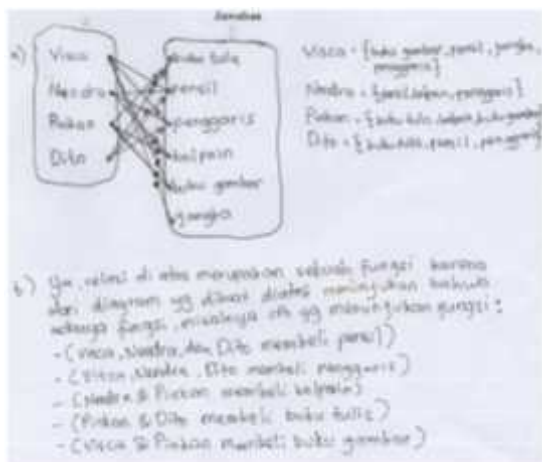 Jawaban
a) Visca
Nendra
Rakan
Dito
buku tulis
pensil
penggaris
bolpoin
buku gambar
jangka
Visca = {buku gambar, pensil, jangka, penggaris}
Nendra = {pensil, bolpoin, penggaris}
= {buku tulis, bolpoin, buku gambar}
Dito = {buku tulis, pensil, penggaris}
b) Ya, relasi di atas merupakan sebuah fungsi karena
dari diagram yg dibuat diatas menunjukan bahwa
fungsi, misalnya yg menunjukan fungsi :
- (Visca, Nendra, dan Dito membeli pensil)
- (Visca, Nendra, Dito membeli penggaris)
- (Nendra & membeli bolpoin)
- ( & Dito membeli buku tulis)
- (Visca & membeli buku gambar)